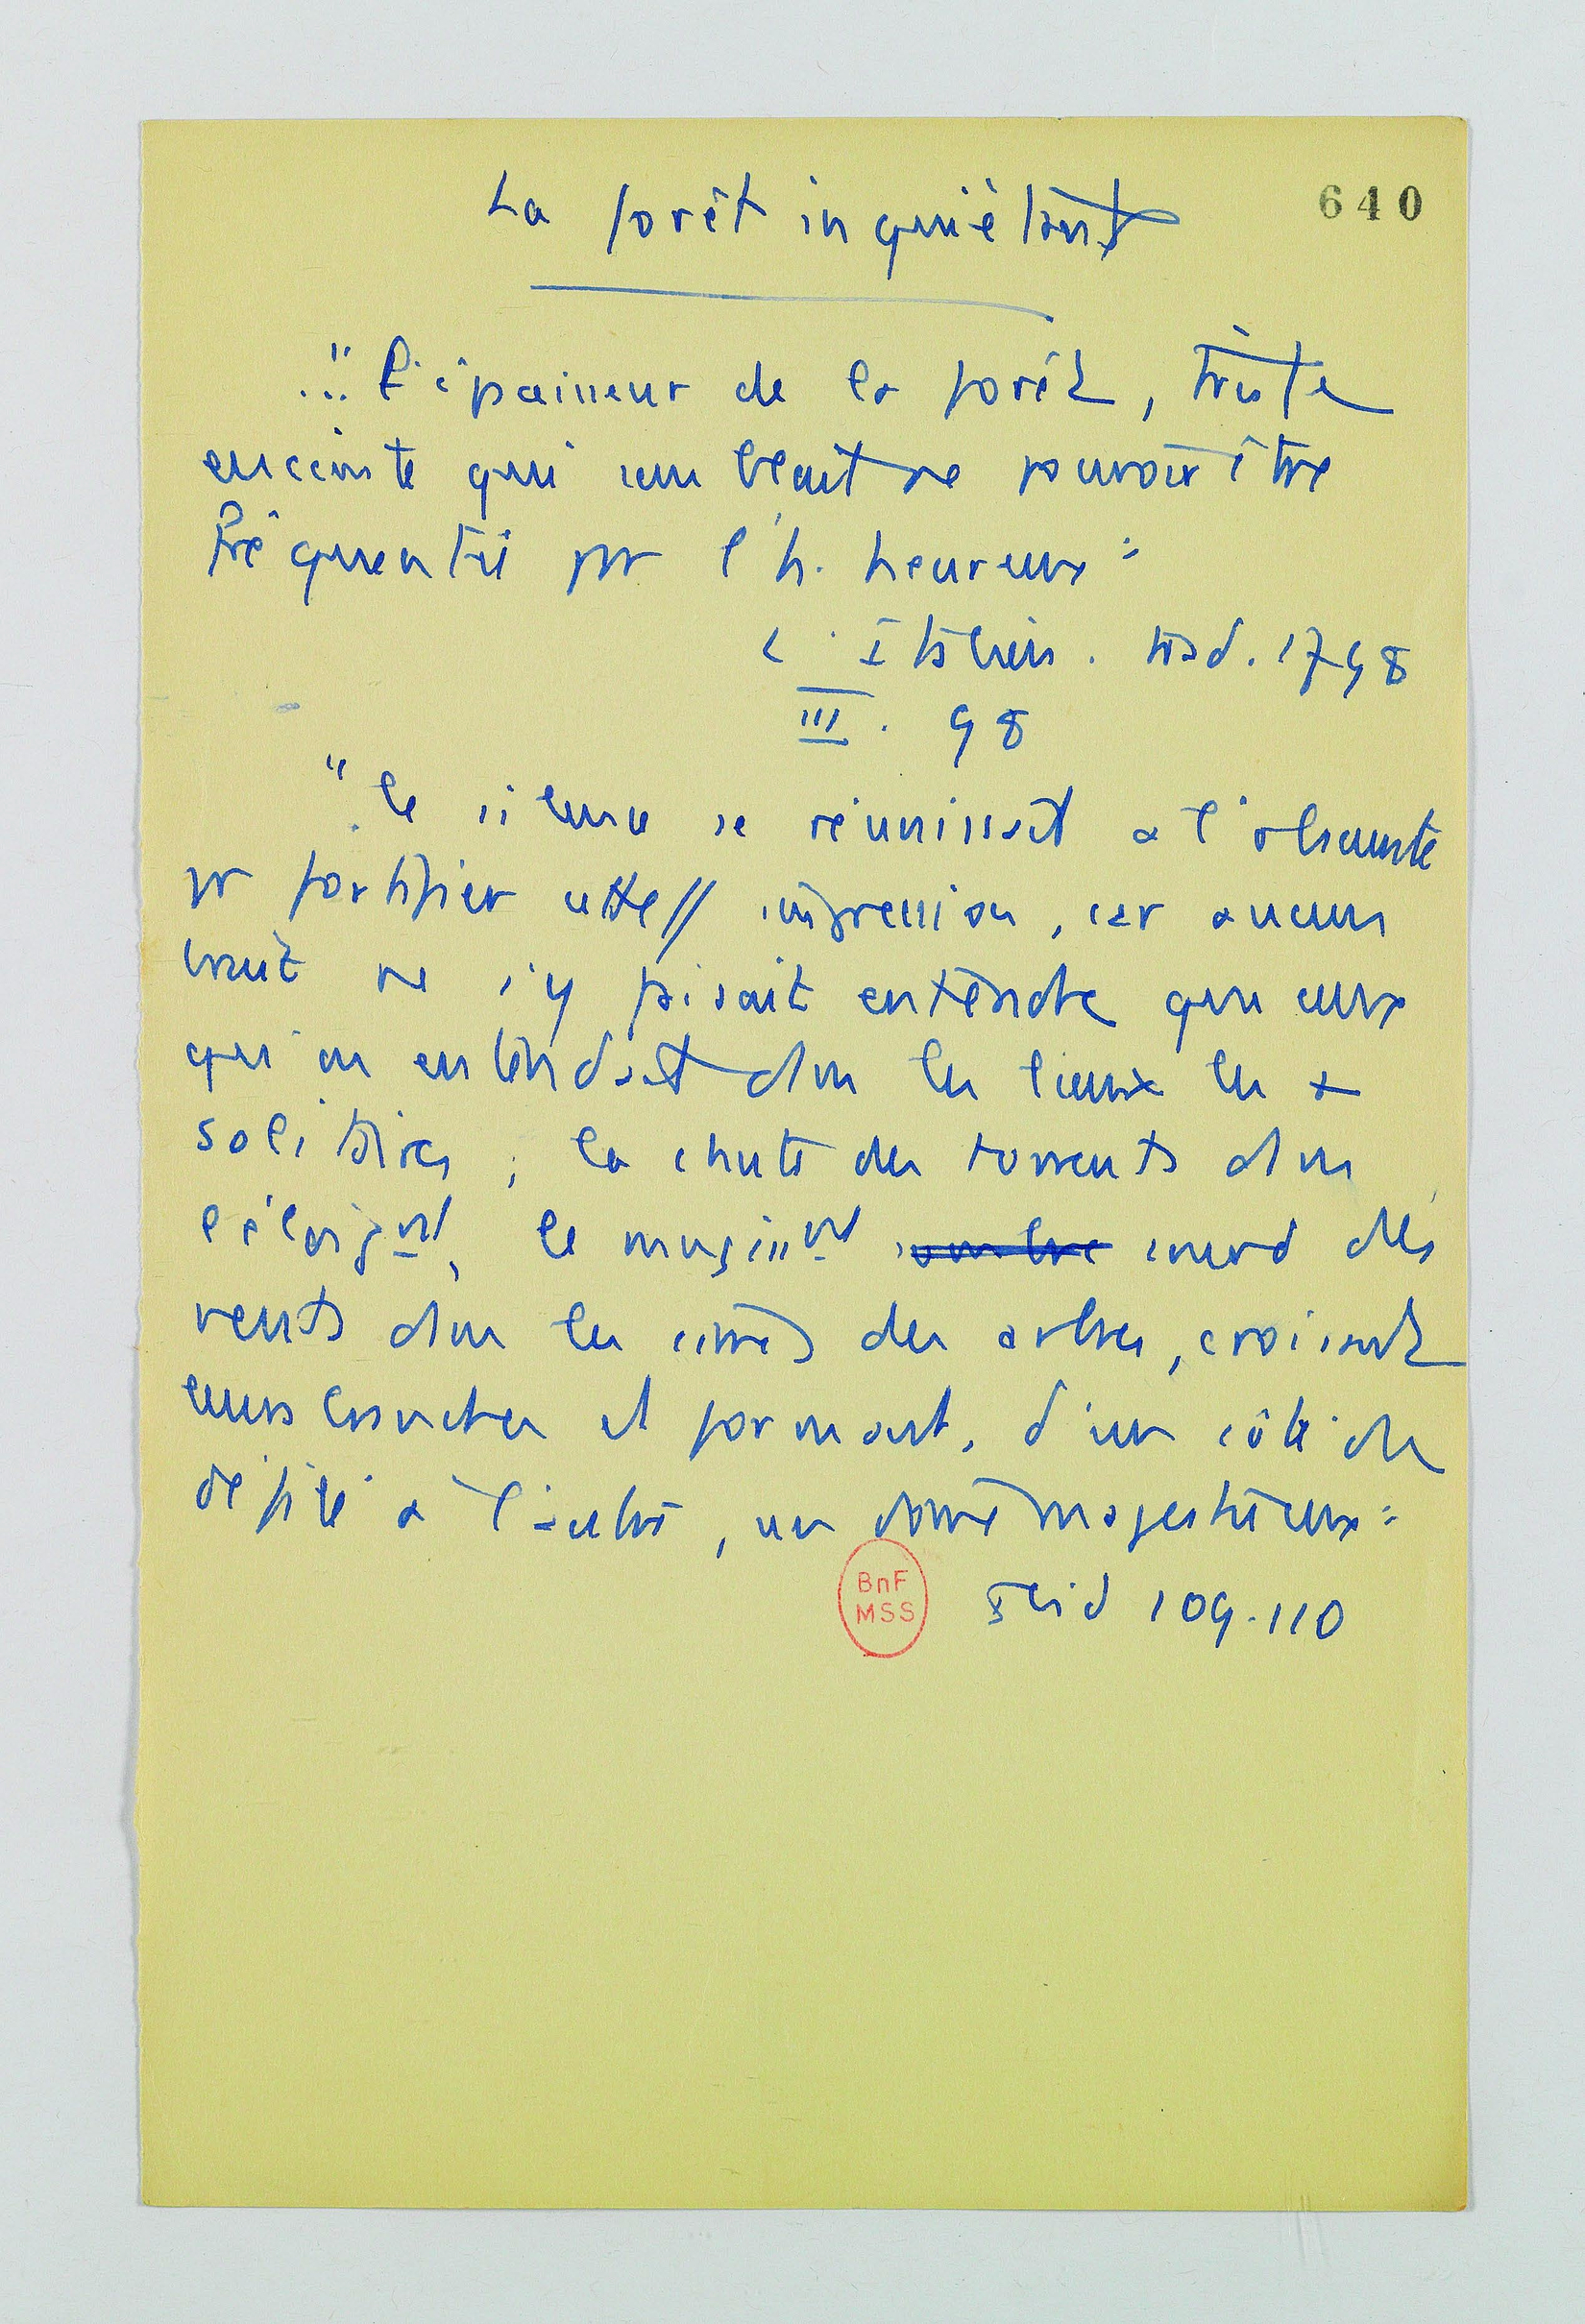 La forêt inquiétante
640
..." L'épaisseur de la forêt, triste
enceinte qui semblait ne pouvoir être
fréquentée pr l'h. heureux"
L'Italien. trad. 1798
III. 98
"le silence se réunissait à l'obscurité
pr fortifier cette // impression, car aucun
bruit ne s'y faisait entendre que ceux
qu'on entendait dans les lieux les +
solitaires ; la chute des torrents dans
l'éloignt, le mugisst sombre sourd des
vents dans les cimes des arbres, croissant
leurs branches et formant, d'un côté du
défilé à l'autre, un dôme majestueux"
Ibid 109-110
BnF
MSS